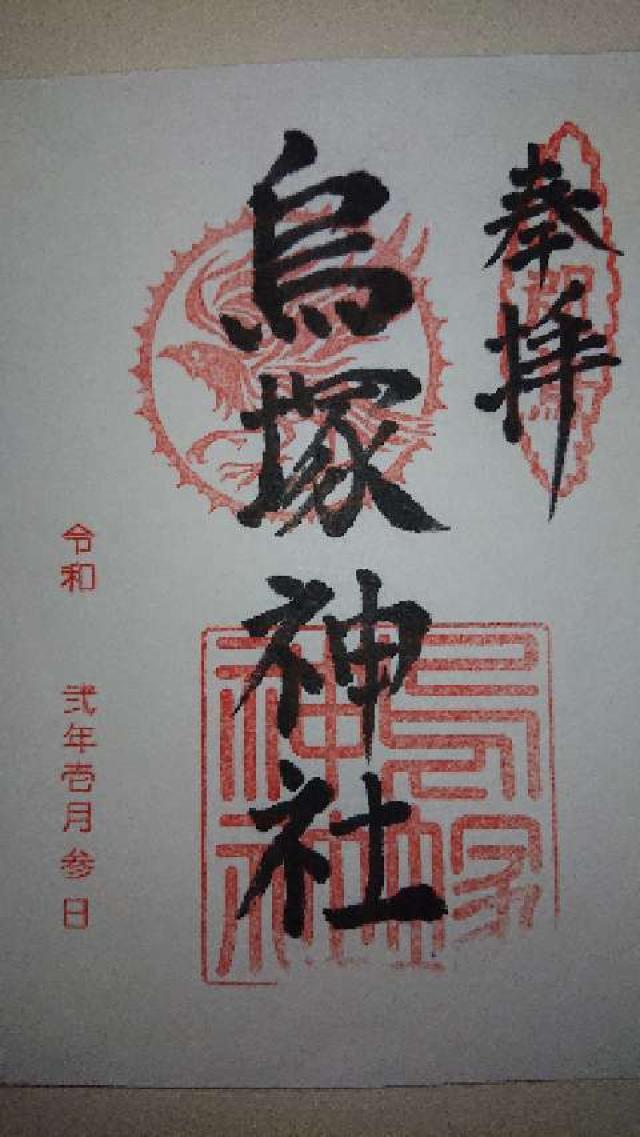 奉拝
烏塚神社
烏塚
神社
令和 弐年壱月参日